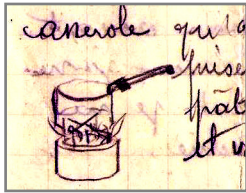 casserole qu'o
puise
pât
et v